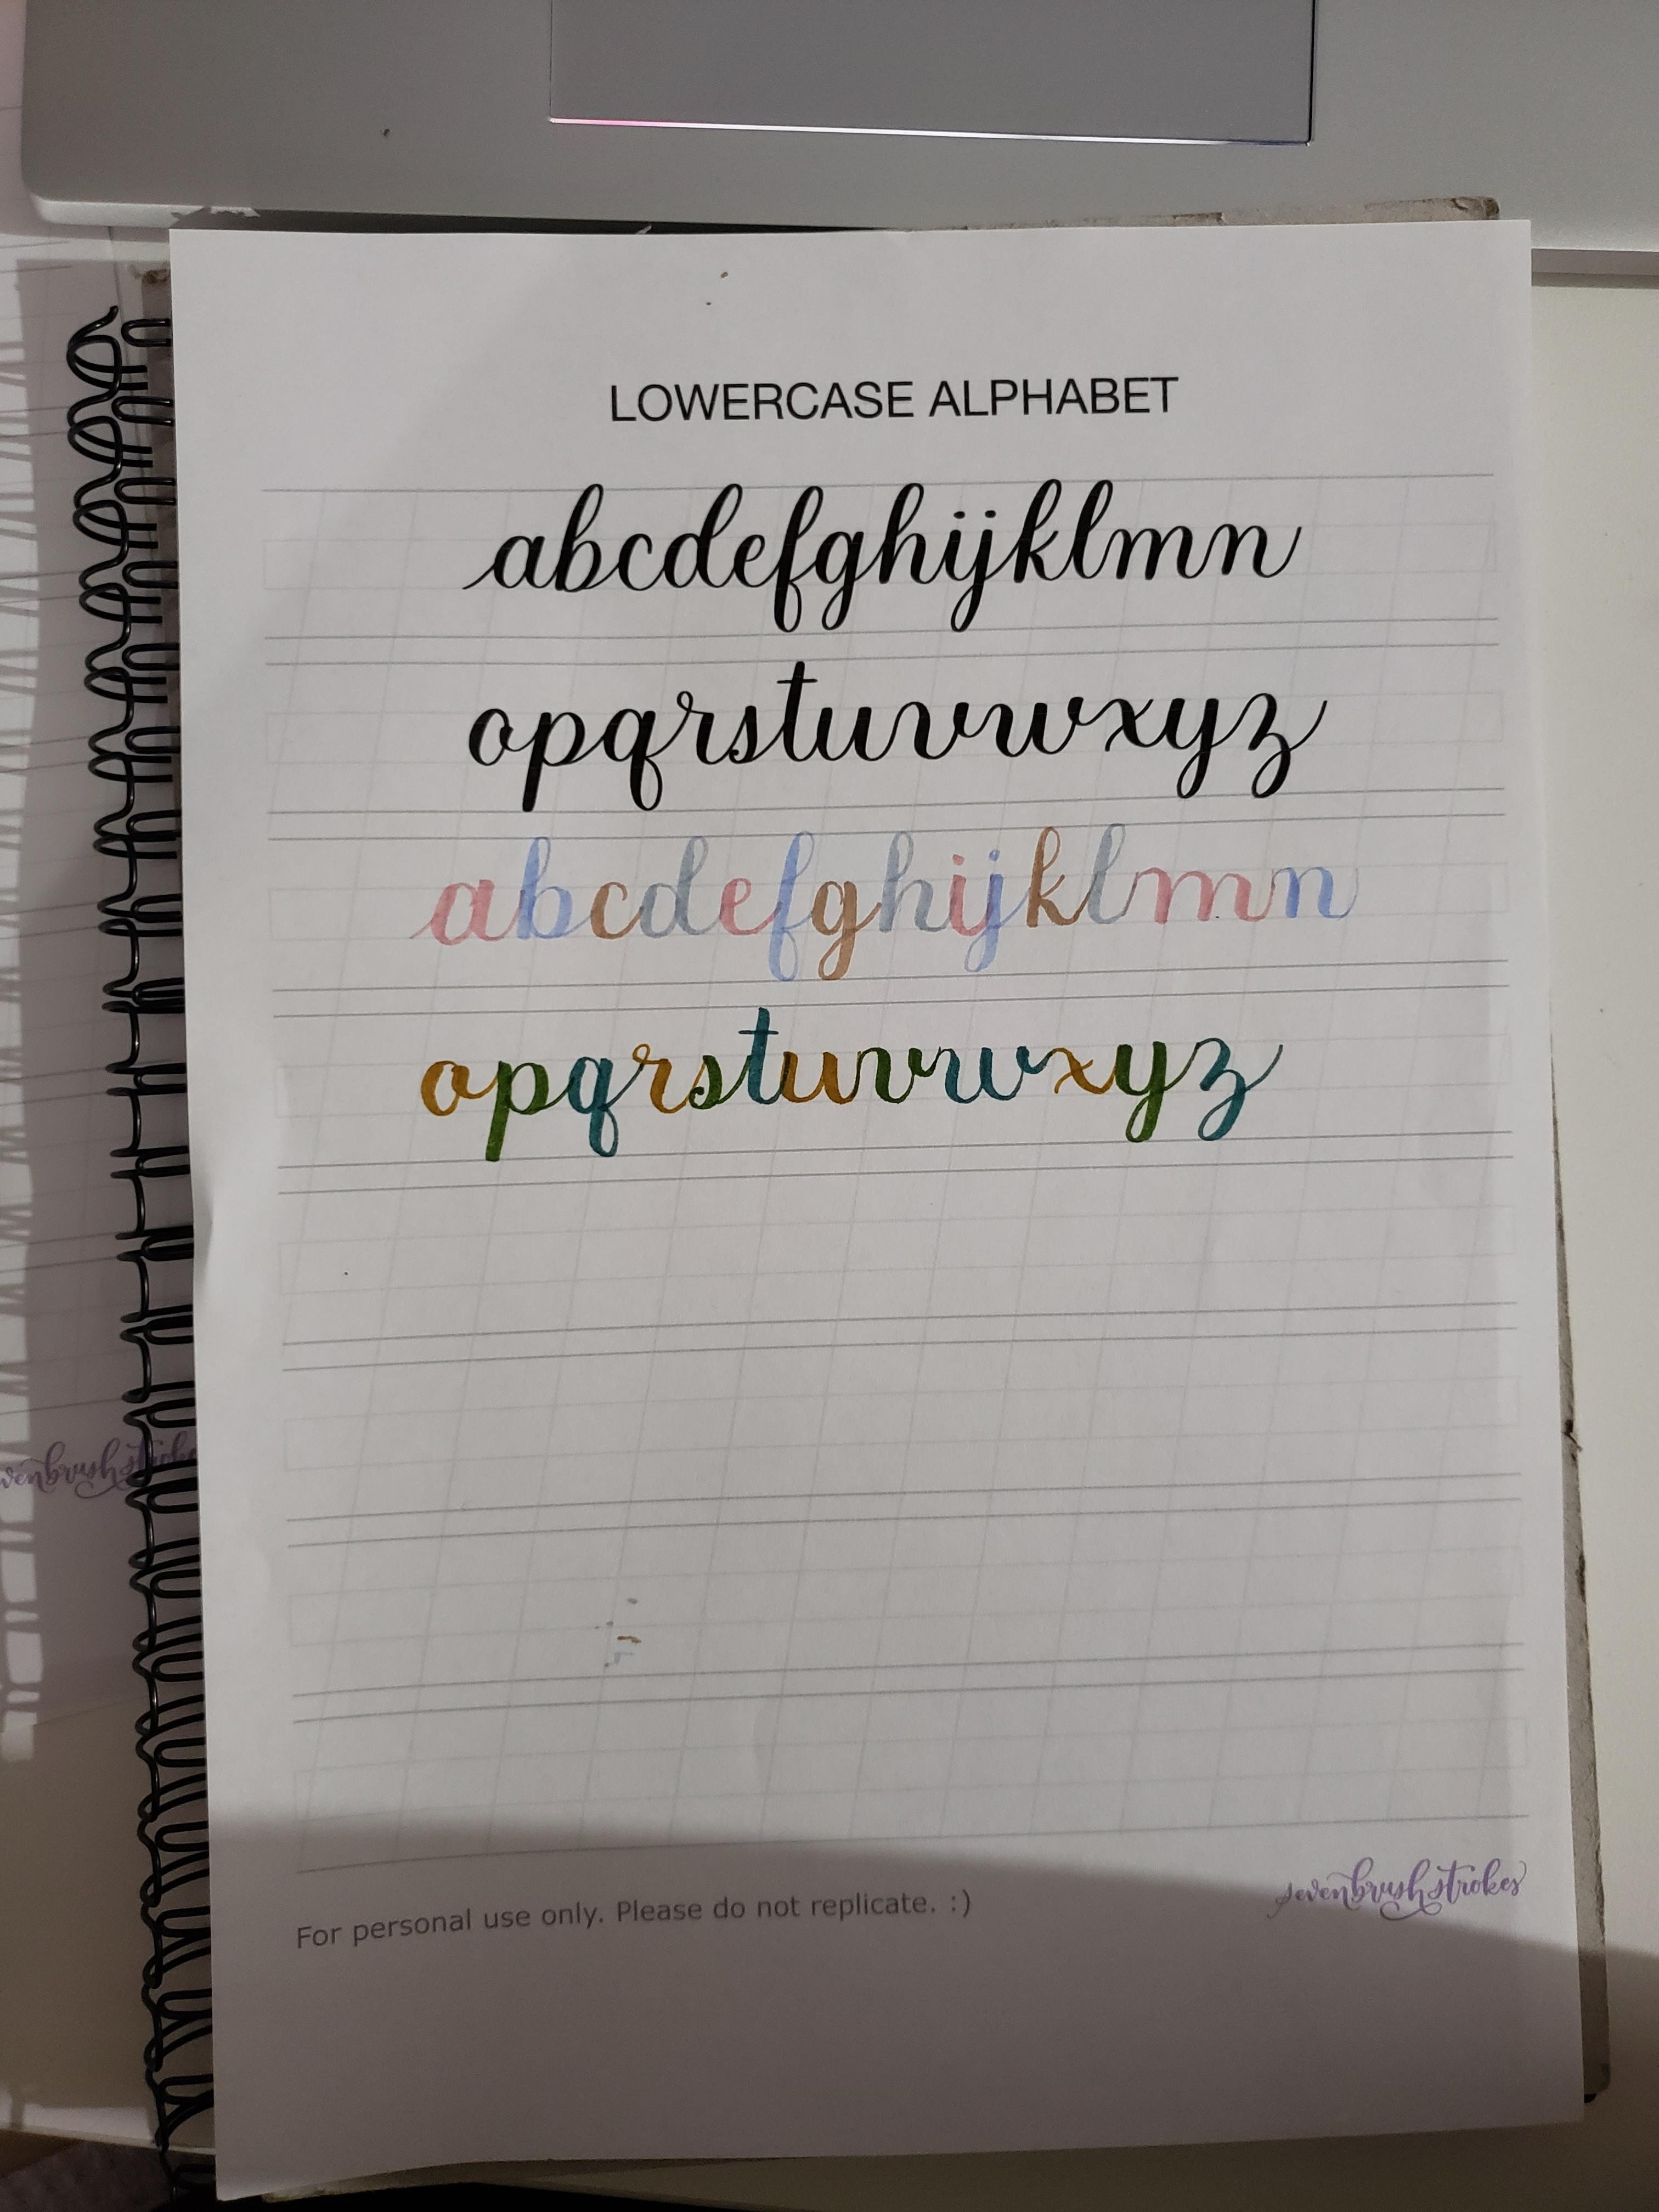 LOWERCASE ALPHABET
abcdefghijklmn
opqrstuvwxyz
abcdefghijklmn
opqrstuvwxyz
For personal use only. Please do not replicate. :)
sevenbrushstrokes